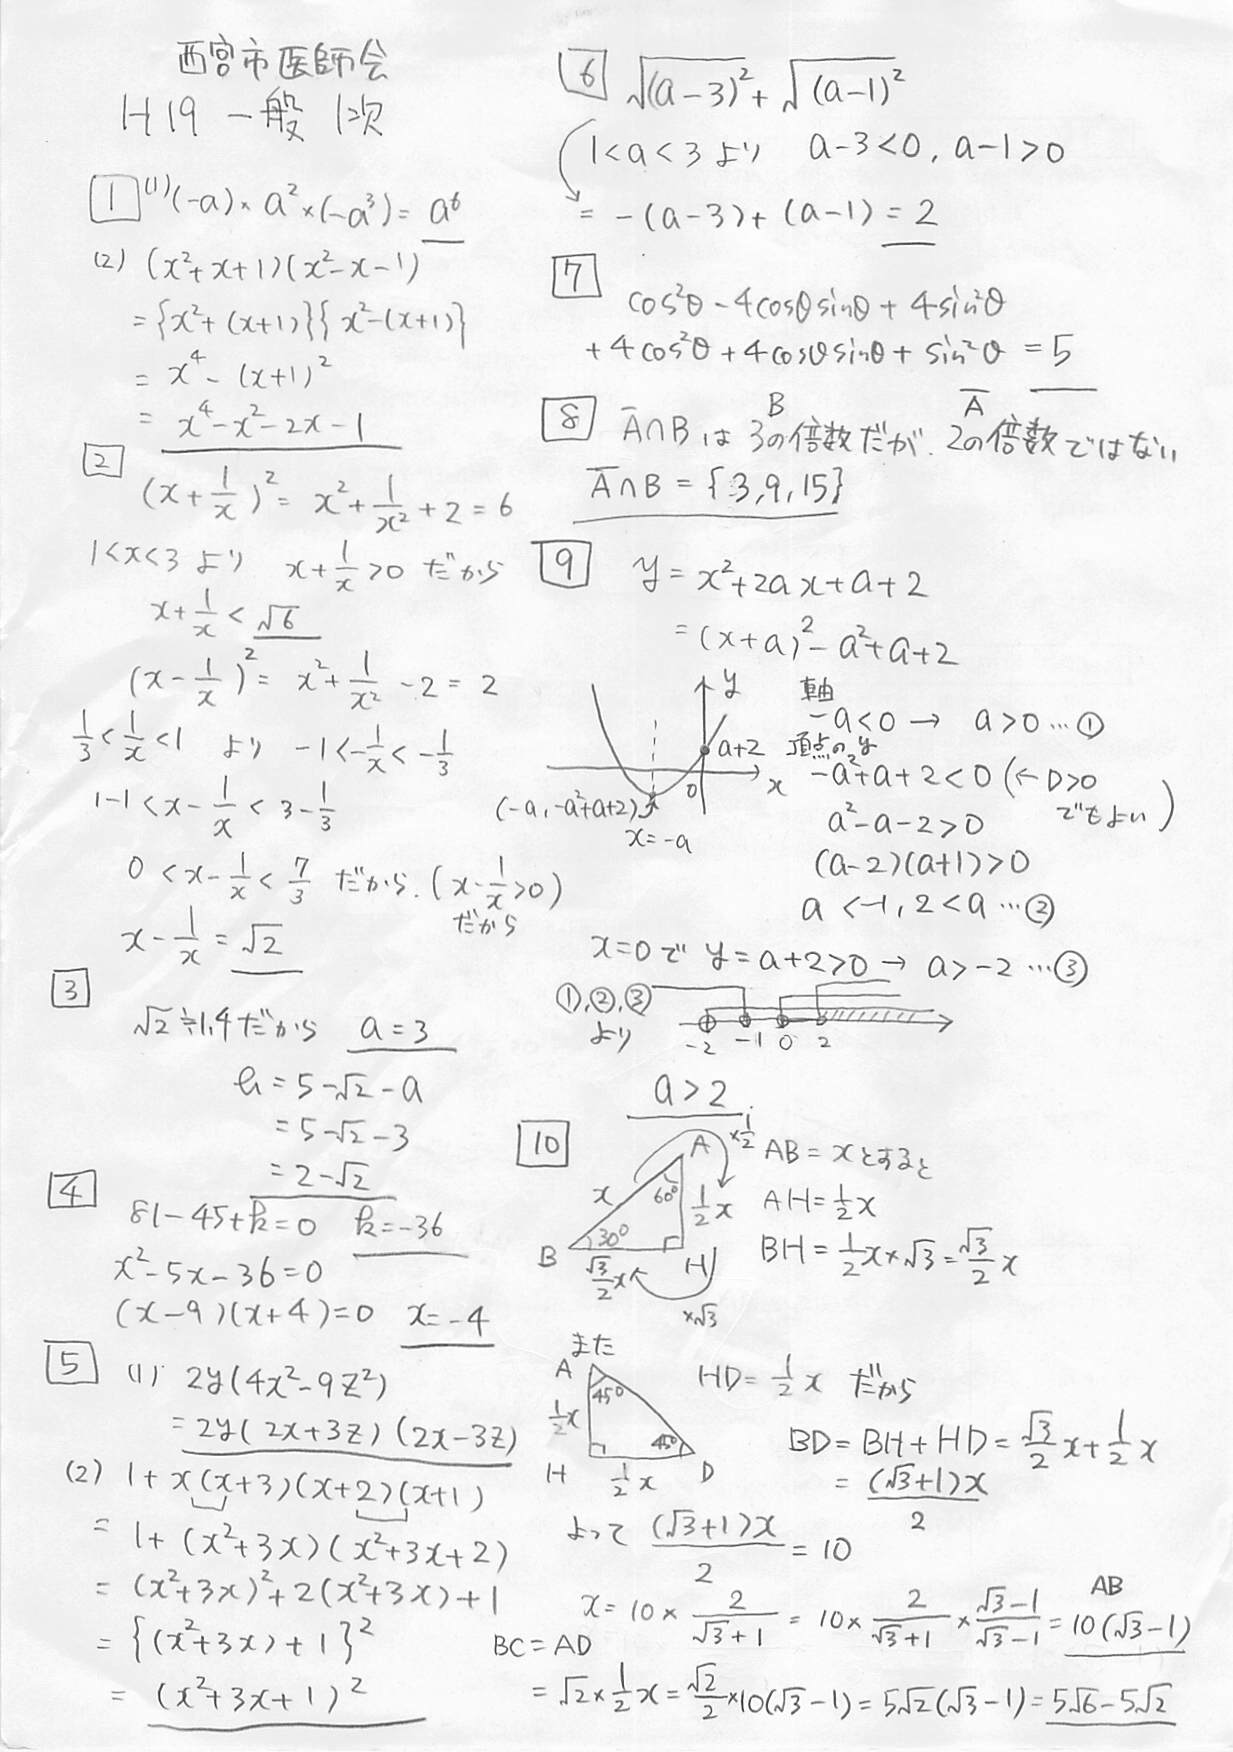 西宮市医師会
H19 一般 1次
1 (1) (-a)×a²×(-a³)=a⁶
(2) (x²+x+1)(x²-x-1)
={x²+(x+1)}{x²-(x+1)}
= x⁴-(x+1)²
= x⁴-x²-2x-1
2
(x+1/x)²= x²+1/x²+2=6
1<x<3より x+1/x>0 だから
x+1/x<√6
(x-1/x)²= x²+1/x²-2=2
1/3<1/x<1 より -1<-1/x<-1/3
1-1<x-1/x<3-1/3
0<x-1/x<7/3 だから. (x-1/x>0)
だから
x-1/x=√2
3
√2≒1.4だから a=3
b=5-√2-a
=5-√2-3
=2-√2
4
81-45+k=0 k=-36
x²-5x-36=0
(x-9)(x+4)=0 x=-4
5 (1) 2y(4x²-9z²)
=2y(2x+3z)(2x-3z)
(2) 1+x(x+3)(x+2)(x+1)
= 1+(x²+3x)(x²+3x+2)
= (x²+3x)²+2(x²+3x)+1
= {(x²+3x)+1}²
= (x²+3x+1)²
6 √(a-3)²+√(a-1)²
1<a<3より a-3<0, a-1>0
= -(a-3)+(a-1)=2
7
cos²θ-4cosθsinθ+4sin²θ
+4cos²θ+4cosθsinθ+sin²θ=5
B A̅
8 A̅∩Bは3の倍数だが. 2の倍数ではない
A̅∩B={3,9,15}
9 y=x²+2ax+a+2
=(x+a)²-a²+a+2
y
軸
-a<0→ a>0…①
a+2
頂点のy
x
0
-a²+a+2<0 (←D>0
でもよい)
(-a,-a²+a+2)
x=-a
a²-a-2>0
(a-2)(a+1)>0
a<-1, 2<a…②
x=0で y=a+2>0→ a>-2…③
①,②,③
より
-2 -1 0 2
a>2
10
A
×1/2
x
60°
1/2x
B
30°
H
√3/2x
×√3
AB=xとすると
AH=1/2x
BH=1/2x×√3=√3/2x
また
A
45°
1/2x
45°
H
1/2x
D
HD=1/2x だから
BD=BH+HD=√3/2x+1/2x
=(√3+1)x/2
よって (√3+1)x/2=10
x=10×2/(√3+1)=10×2/(√3+1)×(√3-1)/(√3-1)=10(√3-1)
AB
BC=AD
=√2×1/2x=√2/2×10(√3-1)=5√2(√3-1)=5√6-5√2